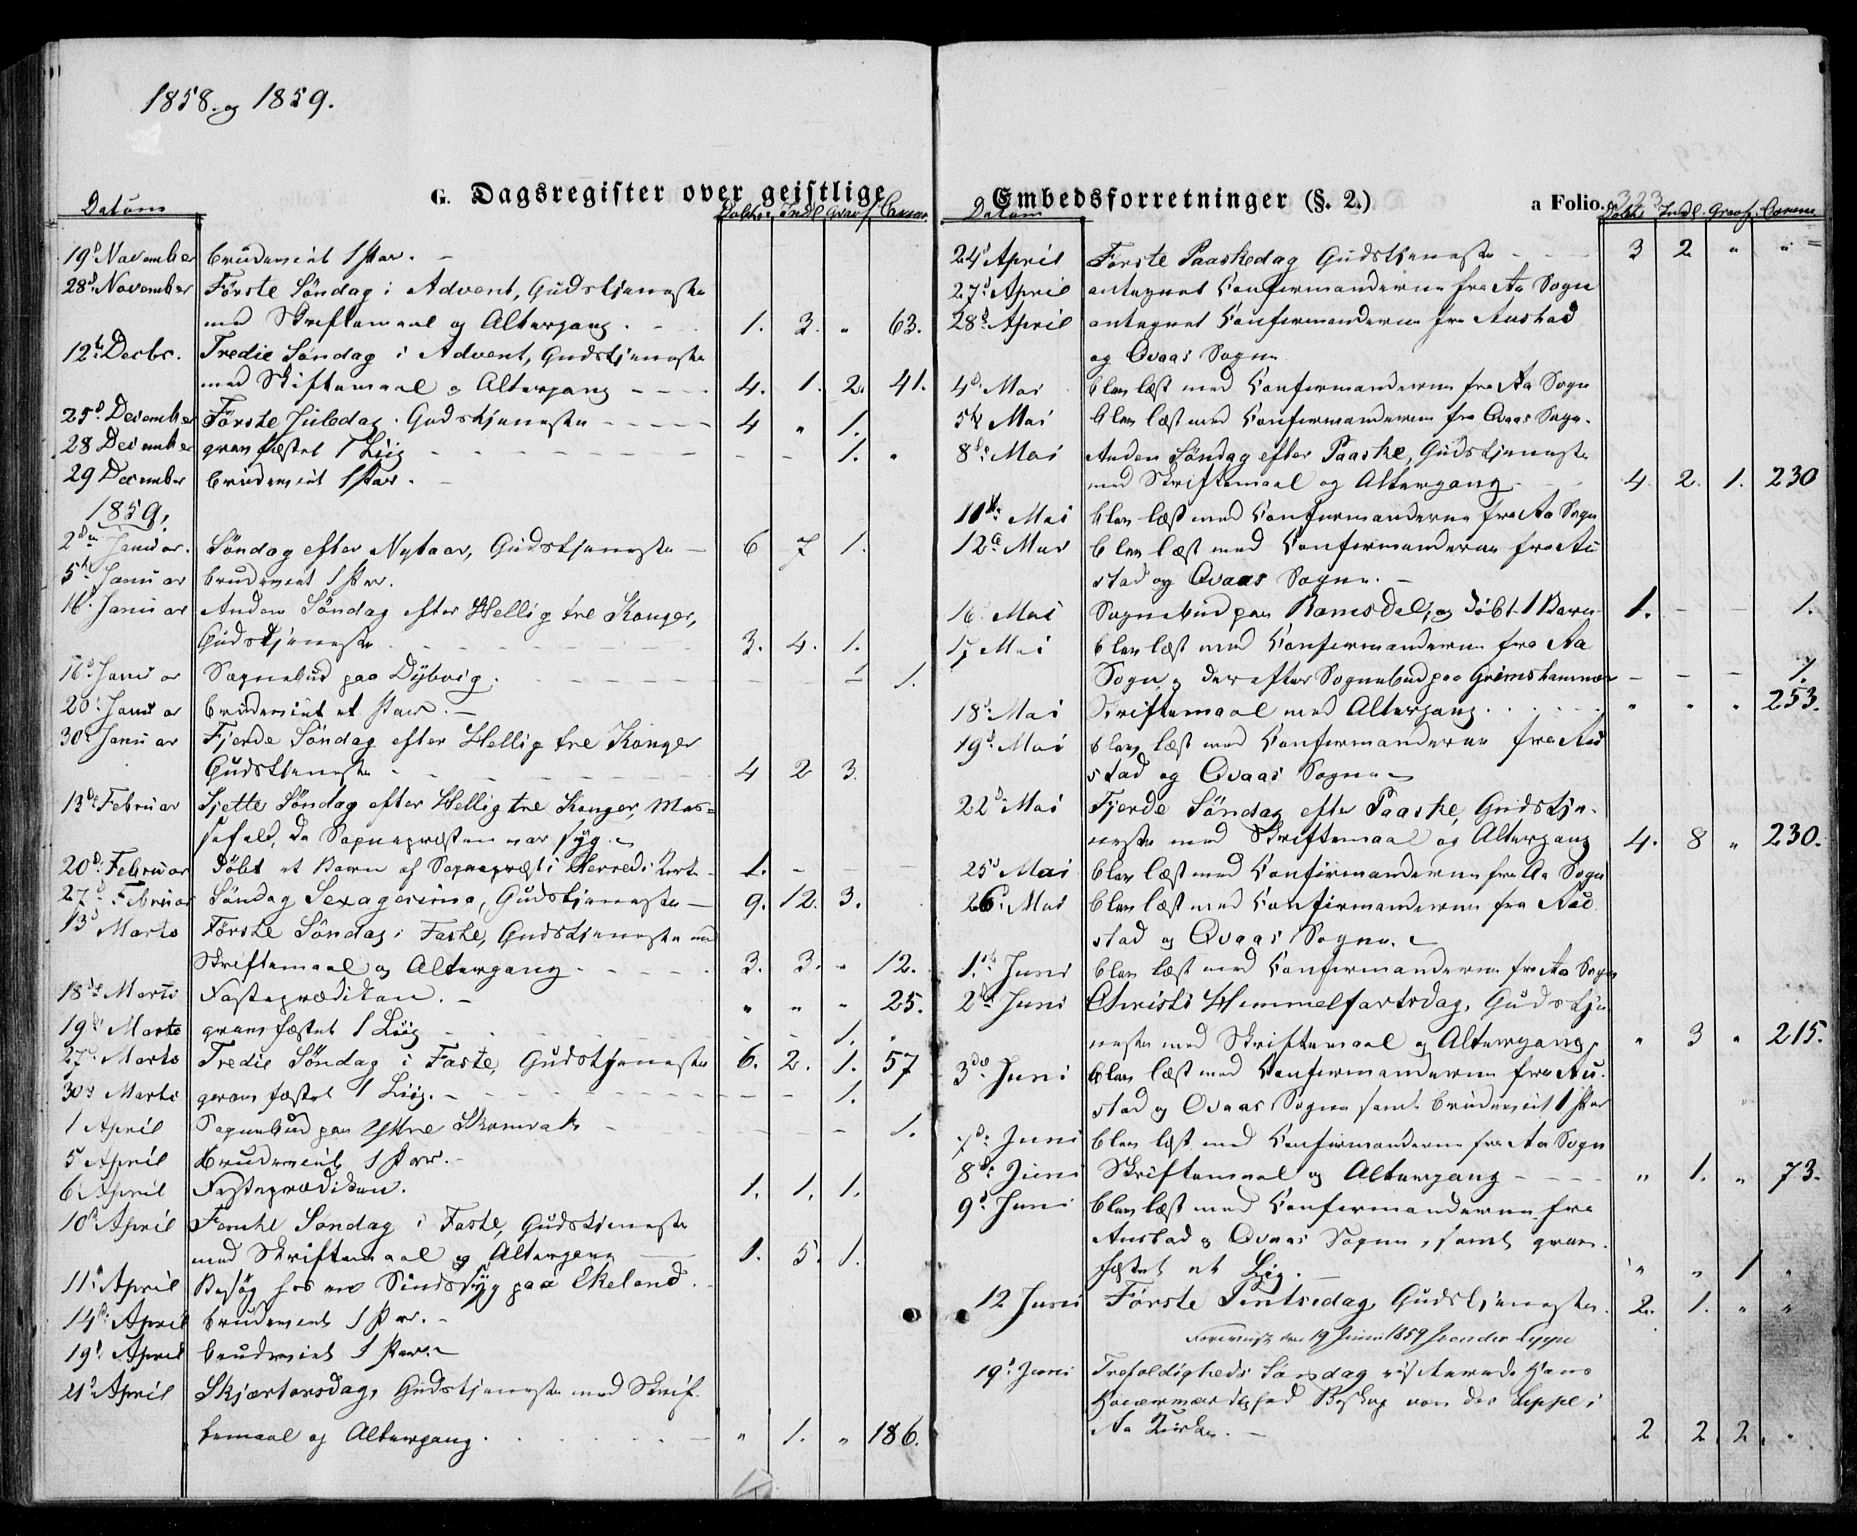 1858. og 1859.
G. Dagsregister over geistlige
Datum Døbte Indl. Gravf. Comm.
19d November brudeviet 1 Par. -
28d November Förste Söndag i Advent, Gudstjeneste
med Skriftemaal og Altergang. 1. 3. " 63.
12te Decbr. Tredie Söndag i Advent, Gudstjeneste
med Skriftemaal og Altergang 4. 1. 2. 41.
25d December Förste Juledag. Gudstjeneste 4 " 1.
28 December gravfæstet 1 Liig 1. "
29 December brudeviet 1 Par. -
1859.
2den Januar. Söndag efter Nytaar, Gudstjeneste 6 7 1.
5te Januar brudeviet 1 Par.
16d Januar Anden Söndag efter Hellig tre Konger,
Gudstjeneste 3. 4. 1.
16d Januar Sognebud paa Dybvig. 1.
20d Januar brudeviet et Par. -
30d Januar Fjerde Söndag efter Hellig tre Konger
Gudstjeneste 4 2 3.
13de Februar Sjette Söndag efter Hellig tre Konger, Mes=
sefald, da Sognepræsten var syg. -
20d Februar Döbt et Barn af Sognepræst i Herreds Kirke 1. - -
27d Februar Söndag Sexagesima, Gudstjeneste 9. 12. 3.
13d Marts Förste Söndag i Faste, Gudstjeneste med
Skriftemaal og Altergang 3. 3. " 12.
18de Marts Fasteprædiken. - " " " 25.
19de Marts gravfæstet 1 Liig - - 1. "
27d Marts Tredie Söndag i Faste, Gudstjeneste 6. 2. 1. 57
30d Marts gravfæstet 1 Liig. - - 1.
1 April Sognebud paa Ytre 1.
5 April Brudeviet 1 Par. -
6 April Fasteprædiken. 1. 1. 1.
10d April Femte Söndag i Faste, Gudstjeneste
med Skriftemaal og Altergang 1. 5. 1.
11d April Besög hos en Sindssyg paa Ekeland.
14d April brudeviet 1 Par. -
19d April brudeviet 1 Par. -
21d April Skjærtorsdag, Gudstjeneste med Skrif-
temaal og Altergang. " 1. " 186.
Embedsforretninger (§. 2.) a Folio. 323
Datum Döbte Indl. Gravf. Comm.
24d April Förste Paaskedag Gudstjeneste 3 2 " "
27d April antegnet Confirmanderne fra Aa Sogn
28d April antegnet Confirmanderne fra Austad
og Qvaas Sogne.
4d Mai blev læst med Confirmanderne fra Aa Sogn
5te Mai blev læst med Confirmanderne fra Qvaas Sogn.
8de Mai Anden Söndag efter Paaske, Gudstjeneste
med Skriftemaal og Altergang 4. 2. 1. 230
11te Mai blev læst med Confirmanderne fra Aa Sogn
12te Mai blev læst med Confirmanderne fra Au
stad og Qvaas Sogne. -
16 Mai Sognebud paa Ramsdal, og döbt 1 Barn 1. - - 1.
17 Mai blev læst med Confirmanderne fra Aa
Sogn, og derefter Sognebud paa Grimshammer - - - 1.
18d Mai Skriftemaal med Altergang " " " 253.
19d Mai blev læst med Confirmanderne fra Au
stad og Qvaas Sogne -
22d Mai Fjerde Söndag efter Paaske, Gudstje-
neste med Skriftemaal og Altergang 4. 8 " 230.
25d Mai blev læst med Confirmanderne fra Aa Sogn
26d Mai blev læst med Confirmanderne fra Au
stad og Qvaas Sogne. -
1ste Juni blev læst med Confirmanderne fra Aa Sogn
2den Juni Christi Himmelfartsdag, Gudstje
neste med Skriftemaal og Altergang. " 3 " 215.
3die Juni blev læst med Confirmanderne fra Au-
stad og Qvaas Sogne samt brudeviet 1 Par
7de Juni blev læst med Confirmanderne fra Aa Sogn
8de Juni Skriftemaal og Altergang " 1. " 73.
9d Juni blev læst med Confirmanderne fra
Austad og Qvaas Sogne, samt grav-
fæstet et Lig. " " 1 "
12 Juni Förste Pintsedag Gudstjeneste. 2. 1. " "
den 19 Juni 1859 von der Lippe
19d Juni Trefoldigheds Söndag visiterede Hans
Höiærværdighed Biskop von der Lippe i
Aa Kirke. - 2 2. 2. "